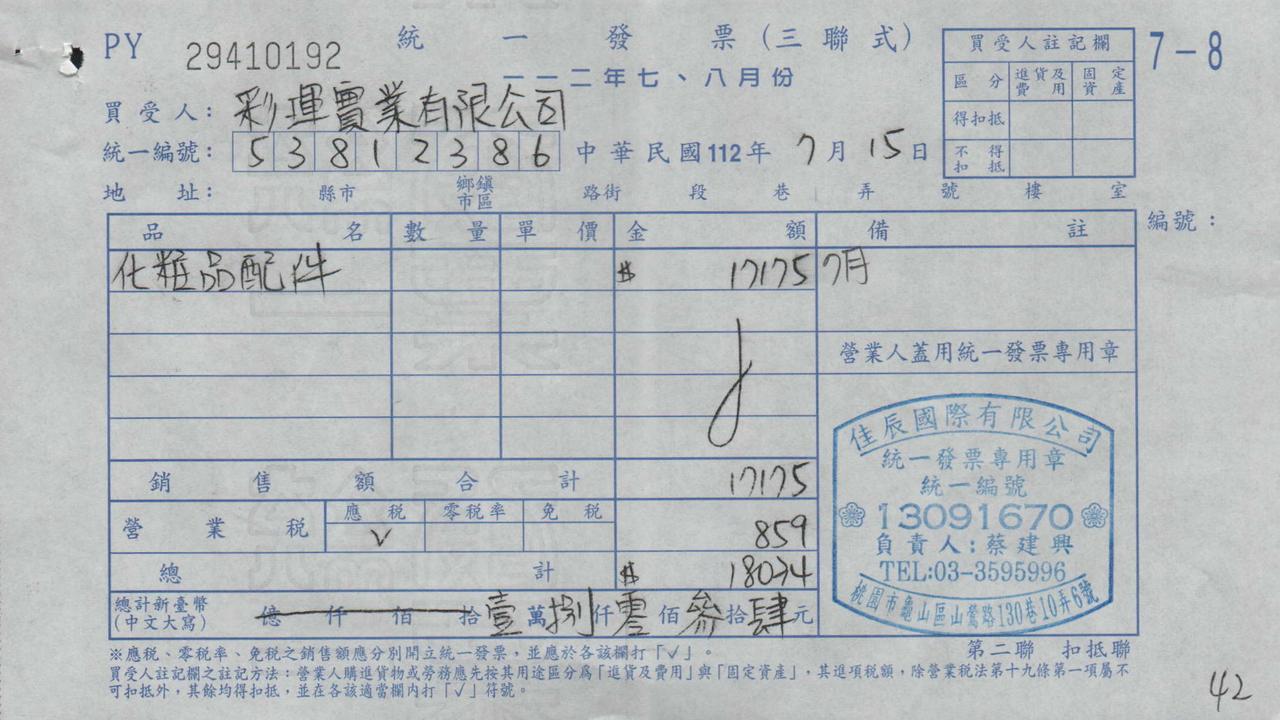 PY 29410192 統一發票(三聯式) 7-8
一一二年七、八月份
買受人: 彩運實業有限公司
統一編號: 5 3 8 1 2 3 8 6 中華民國112年 7月 15日
地 址: 縣市 鄉鎮市區 路街 段 巷 弄 號 樓 室
買受人註記欄
區分 進貨及費用 固定資產
得扣抵
不得扣抵
編號:
品名 數量 單價 金額 備註
化粧品配件 $ 17175 7月
營業人蓋用統一發票專用章
銷售額合計 17175
營業稅 應稅 零稅率 免稅
V 859
總計 $ 18034
總計新臺幣(中文大寫) 億 仟 佰 拾壹萬捌仟零佰參拾肆元
佳辰國際有限公司
統一發票專用章
統一編號
13091670
負責人:蔡建興
TEL:03-3595996
桃園市龜山區山鶯路130巷10弄6號
※應稅、零稅率、免稅之銷售額應分別開立統一發票,並應於各該欄打「√」。
第二聯 扣抵聯
買受人註記欄之註記方法:營業人購進貨物或勞務應先按其用途區分為「進貨及費用」與「固定資產」,其進項稅額,除營業稅法第十九條第一項屬不
可扣抵外,其餘均得扣抵,並在各該適當欄內打「√」符號。
42